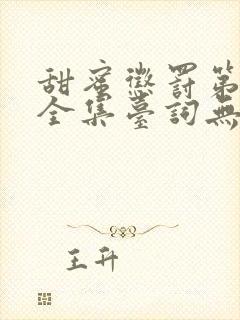 甜蜜懲罰第
全集臺詞無
王升